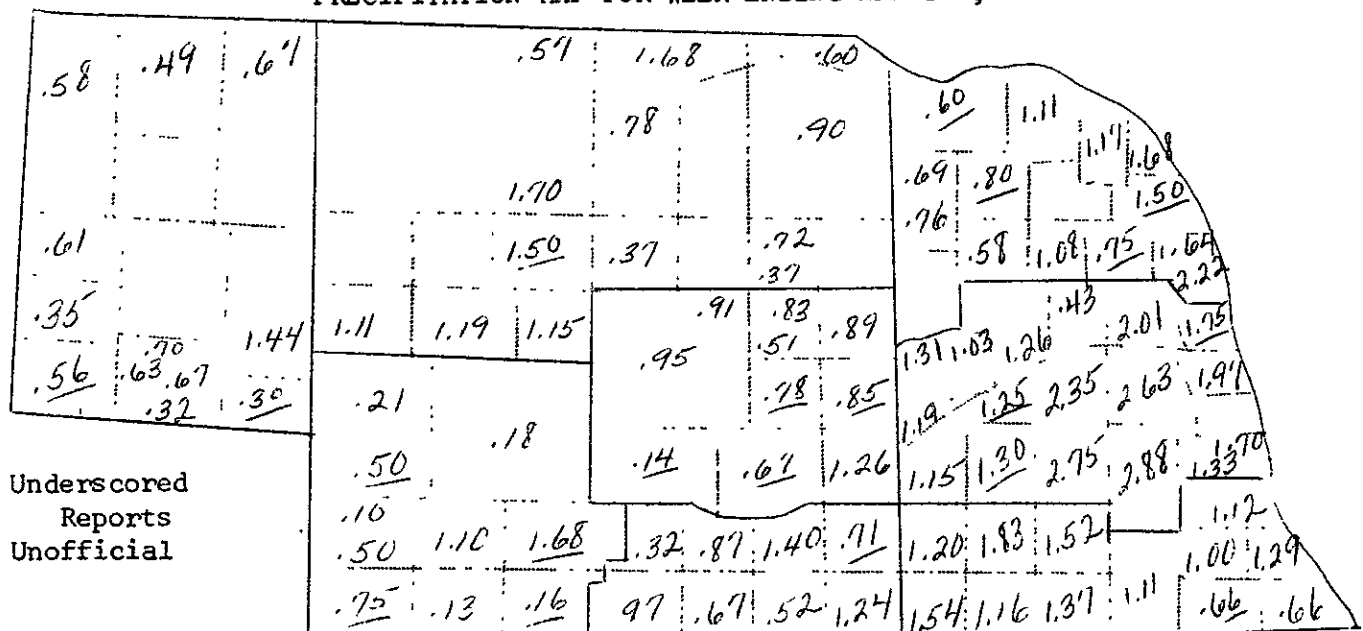 .58 .49 .67 .57 1.68 .60
.60 1.11
.78 .90
1.17 1.68
.69 .80
1.70 1.50
.76
.61 1.50 .37 .72 .58 1.08 .75 1.64
.37 2.22
.35 1.44 1.11 1.19 1.15 .91 .83 .89 .43 2.01 1.75
.70 .95 .51 1.31 1.03 1.26
.56 .63 .67 .78 .85 1.19 1.25 2.35 2.63 1.97
.32 .30 .21
.18
.50 .14 .67 1.26 1.15 1.30 2.75 2.88 1.70
1.33
Underscored
Reports
Unofficial
.10 1.12
.50 1.10 1.68 .32 .87 1.40 .71 1.20 1.83 1.52 1.00 1.29
.75 .13 .16 97 .67 .52 1.24 1.54 1.16 1.37 1.11 .66 .66